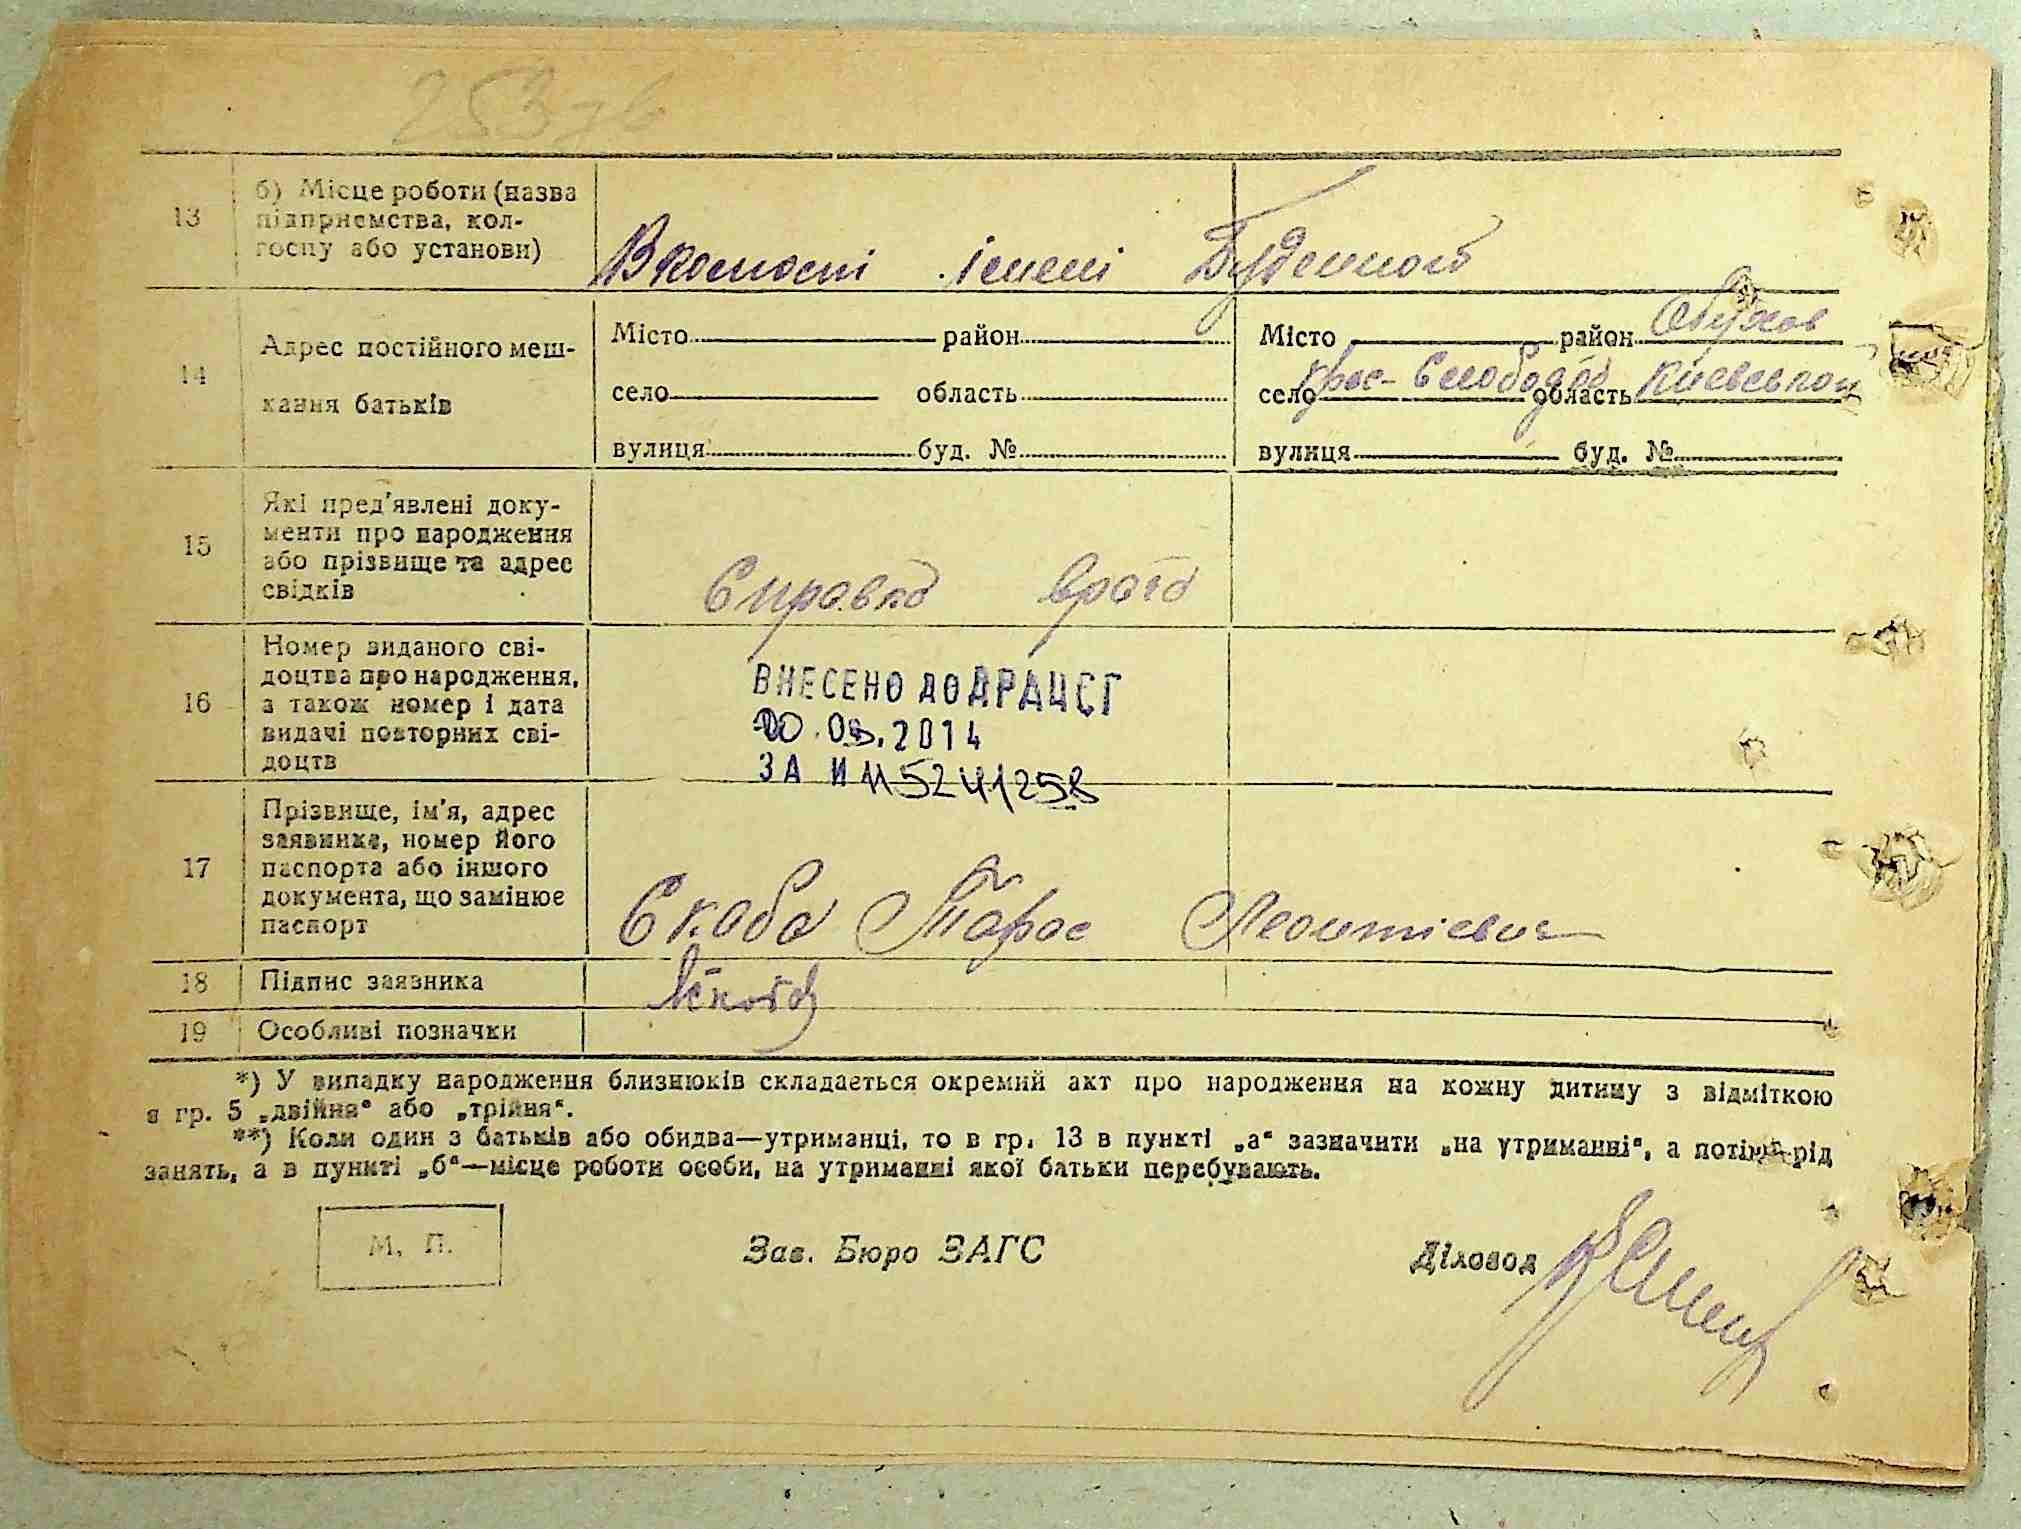 253
13
б) Місце роботи (назва
підприємства, кол-
госпу або установи)
В колгоспі імені Буденного
14
Адрес постійного меш-
кання батьків
Місто район
село область
вулиця буд. №
Місто район Обухов
село Крас-Слободка область Киевской
вулиця буд. №
15
Які пред'явлені доку-
менти про народження
або прізвище та адрес
свідків
Справка врача
16
Номер виданого сві-
доцтва про народження,
а також номер і дата
видачі повторних сві-
доцтв
ВНЕСЕНО ДО ДРАЦСГ
.2014
ЗА № 115241258
17
Прізвище, ім'я, адрес
заявника, номер його
паспорта або іншого
документа, що замінює
паспорт
Скаба Тарас Леонтієвич
18
Підпис заявника
19
Особливі позначки
*) У випадку народження близнюків складається окремий акт про народження на кожну дитину з відміткою
в гр. 5 „двійня“ або „трійня“.
**) Коли один з батьків або обидва—утриманці, то в гр. 13 в пункті „а“ зазначити „на утриманні“, а потім рід
занять, а в пункті „б“—місце роботи особи, на утриманні якої батьки перебувають.
М. П.
Зав. Бюро ЗАГС
Діловод